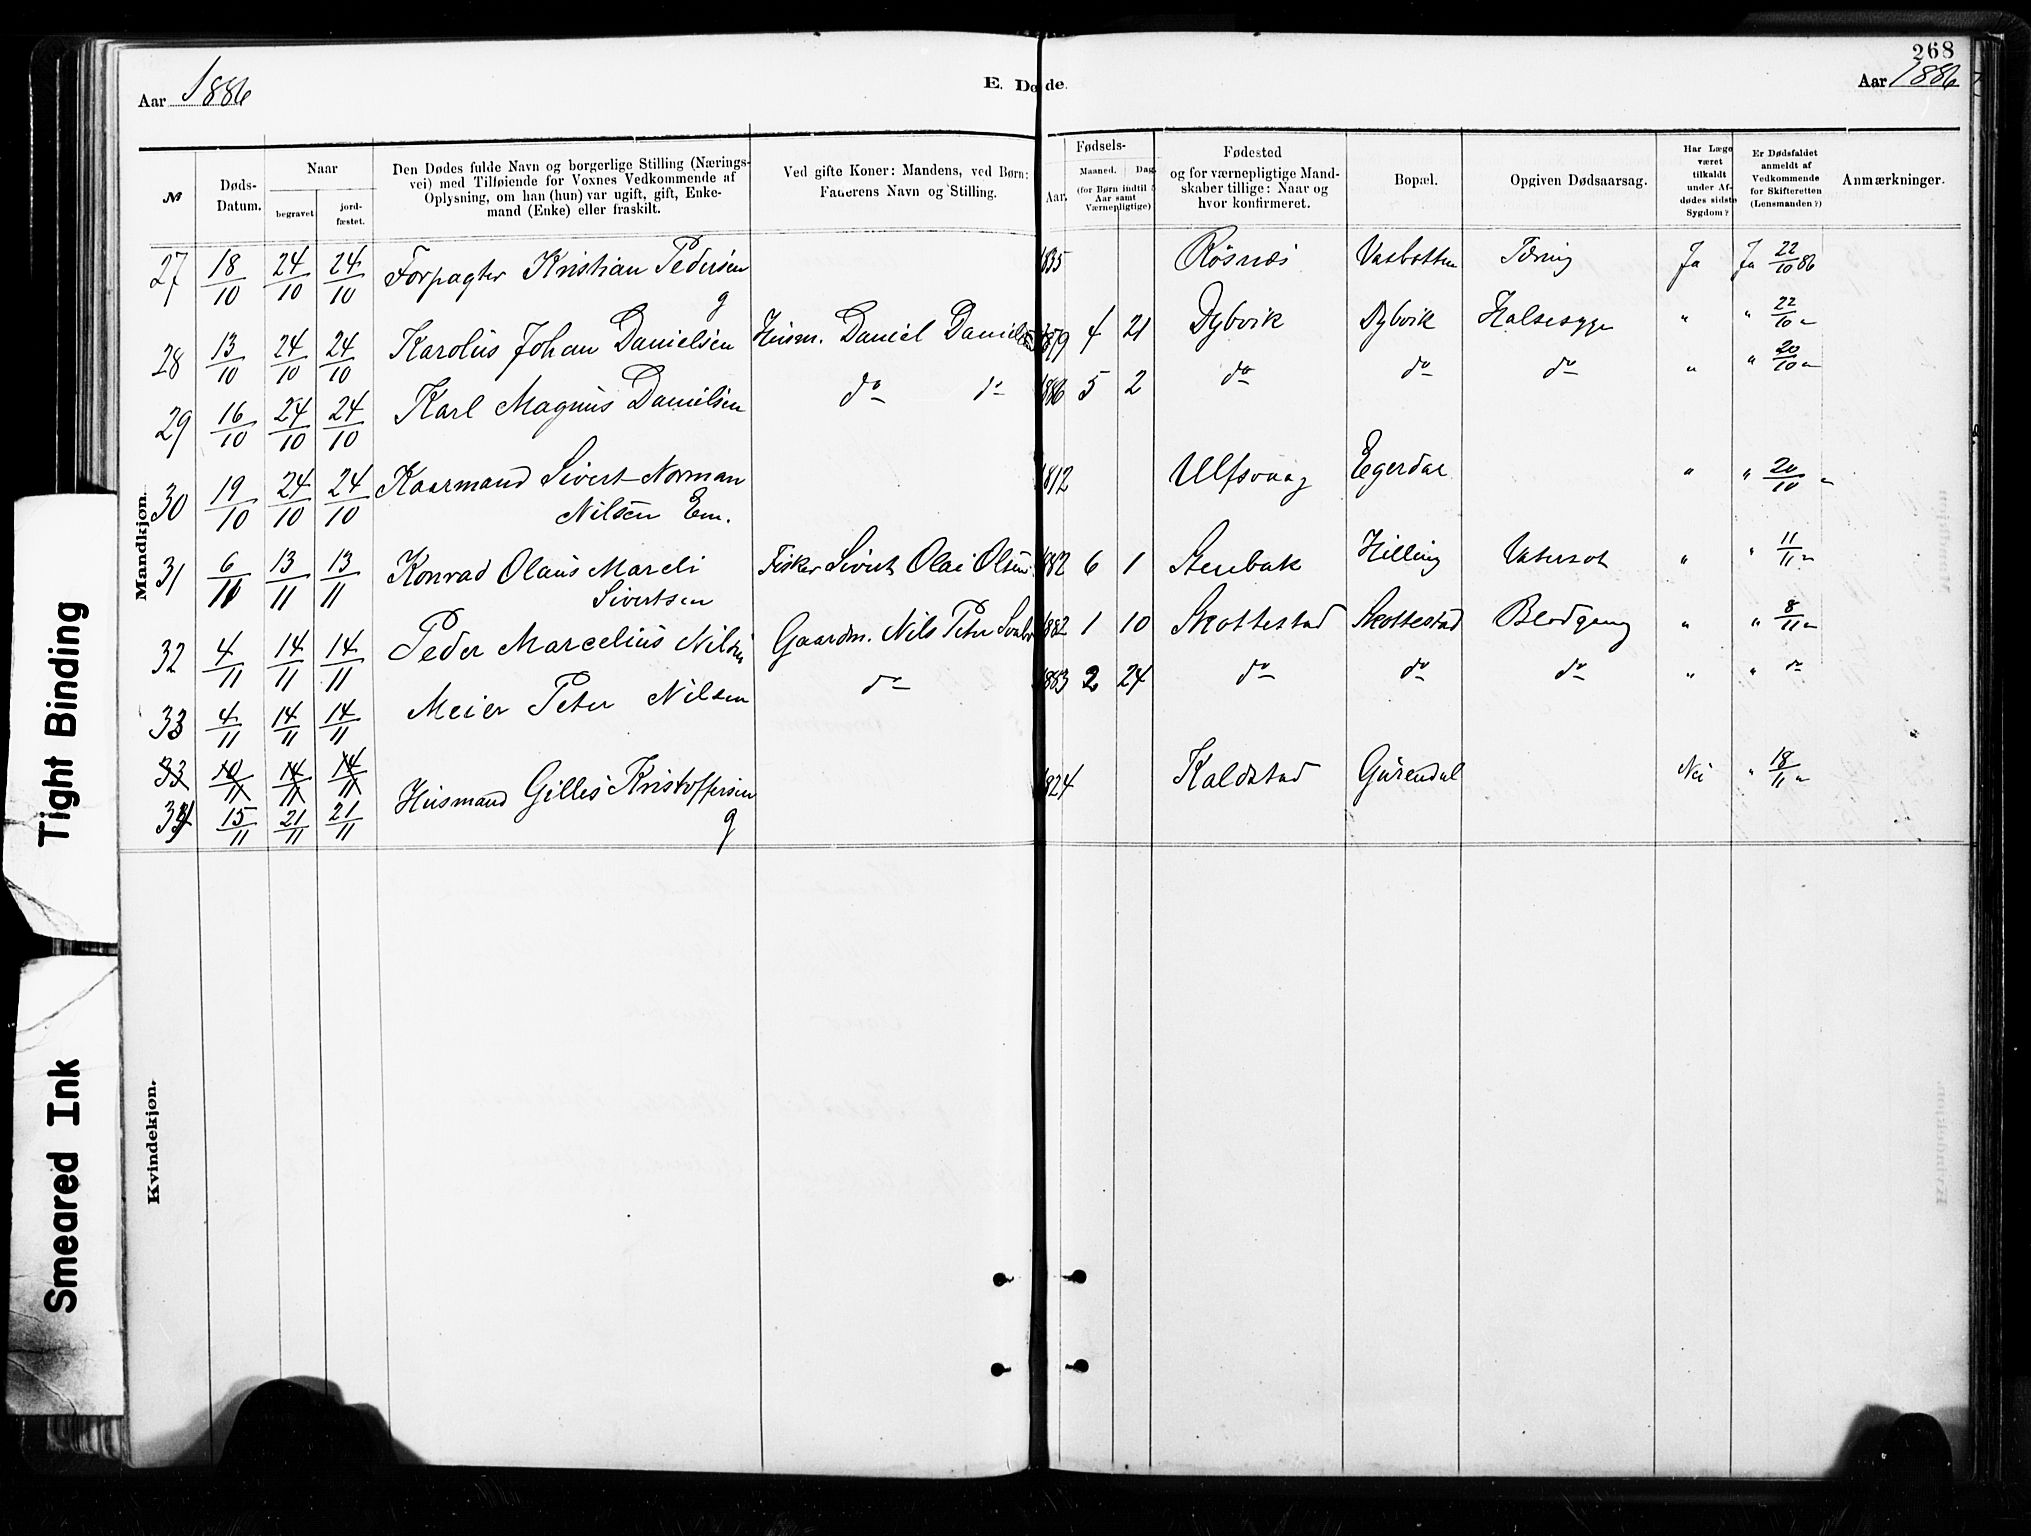 268
Aar 1886
E. Døde.
Aar 1886
№
Døds-Datum.
Naar
begravet
jordfæstet.
Den Dødes fulde Navn og borgerlige Stilling (Nærings-
vei) med Tilføiende for Voxnes Vedkommende af
Oplysning, om han (hun) var ugift, gift, Enke-
mand (Enke) eller fraskilt.
Ved gifte Koner: Mandens, ved Børn:
Faderens Navn og Stilling.
Fødsels-
Aar.
Maaned.
Dag.
(for Børn indtil 2
Aar samt
Værnepligtige)
Fødested
og for værnepligtige Mand-
skaber tillige: Naar og
hvor konfirmeret.
Bopæl.
Opgiven Dødsaarsag.
Har Læge
været
tilkaldt
under Af-
dødes sidste
Sygdom?
Er Dødsfaldet
anmeldt af
Vedkommende
for Skifteretten
(Lensmanden?)
Anmærkninger.
Mandkjøn.
27 18/10 24/10 24/10 Forpagter Kristian Pedersen g 1835 Røsnæs Vasbotten Tæring Ja Ja 22/10 86
28 13/10 24/10 24/10 Karolus Johan Danielsen Husm. Daniel Danielsen 1879 4 21 Dybvik Dybvik Halsesyge " " 22/10 "
29 16/10 24/10 24/10 Karl Magnus Danielsen do do 1886 5 2 do do do " " 20/10 "
30 19/10 24/10 24/10 Kaarmand Sivert Norman
Nilsen Em. 1812 Ulfsvaag Egerdal " " 20/10 "
31 6/11 13/11 13/11 Konrad Olaus Mareli
Sivertsen Fisker Sivert Olai Olsen 1882 6 1 Stenbak Hilling Vatersot " " 11/11 "
32 4/11 14/11 14/11 Peder Marcelius Nilsen Gaardm. Nils Peter 1882 1 10 Skottestad Skottestad Blodgang " " 8/11 "
33 4/11 14/11 14/11 Meier Peter Nilsen do 1883 2 24 do do do " " do
33 10/11 14/11 14/11
34 15/11 21/11 21/11 Husmand Gilles Kristoffersen g 1824 Kaldstad Gurendal Nei " 18/11 "
Kvindekjøn.
Tight Binding
Smeared Ink